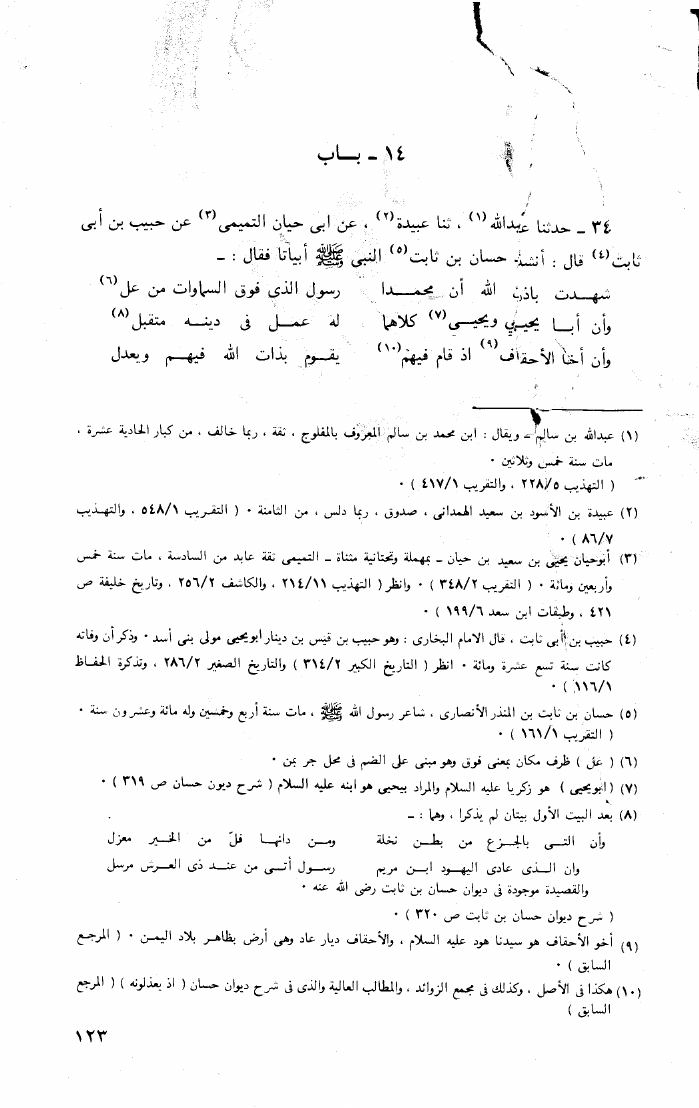 ١٤ ــ بــاب
٣٤ ــ حدثنا عبدالله(١) ، ثنا عبيدة(٢) ، عن ابى حيان التميمى(٣) عن حبيب بن أبى
ثابت(٤) قال : أنشد حسان بن ثابت(٥) النبى ﷺ أبياتا فقال : ــ
شهـدت باذن الله أن محمـدا رسول الذى فوق السماوات من عل(٦)
وأن أبـا يحيـى ويحيـى(٧) كلاهما له عمـل فى دينـه متقبل(٨)
وأن أخـا الأحقاف(٩) اذ قام فيهم(١٠) يقـوم بذات الله فيهـم ويعدل
(١) عبدالله بن سالم ــ ويقال : ابن محمد بن سالم المعروف بالمفلوج ، ثقة ، ربما خالف ، من كبار الحادية عشرة ،
مات سنة خمس وثلاثين ٠
( التهذيب ٢٢٨/٥ ، والتقريب ٤١٧/١ ) ٠
(٢) عبيدة بن الأسود بن سعيد الهمدانى ، صدوق ، ربما دلس ، من الثامنة ٠ ( التقـريب ٥٤٨/١ ، والتهـذيب
٨٦/٧ ) ٠
(٣) أبوحيان يحيى بن سعيد بن حيان ــ بمهملة وتحتانية مثناة ــ التميمى ثقة عابد من السادسة ، مات سنة خمس
وأربعين ومائة ٠ ( التقريب ٣٤٨/٢ ) ٠ وانظر ( التهذيب ٢١٤/١١ ، والكاشف ٢٥٦/٢ ، وتاريخ خليفة ص
٤٢١ ، وطبقات ابن سعد ١٩٩/٦ ) ٠
(٤) حبيب بن أبى ثابت ، قال الامام البخارى : وهو حبيب بن قيس بن دينار ابويحيى مولى بنى أسد ٠ وذكر أن وفاته
كانت سنة تسع عشرة ومائة ٠ انظر ( التاريخ الكبير ٣١٤/٢ ) والتاريخ الصغير ٢٨٦/٢ ، وتذكرة الحفـاظ
١١٦/١ ) ٠
(٥) حسان بن ثابت بن المنذر الأنصارى ، شاعر رسول الله ﷺ ، مات سنة أربع وخمسين وله مائة وعشرون سنة ٠
( التقريب ١٦١/١ ) ٠
(٦) ( عل ) ظرف مكان بمعنى فوق وهو مبنى على الضم فى محل جر بمن ٠
(٧) ( ابويحيى ) هو زكريا عليه السلام والمراد بيحيى هو ابنه عليه السلام ( شرح ديون حسان ص ٣١٩ ) ٠
(٨) بعد البيت الأول بيتان لم يذكرا ، وهما : ــ
وأن التـى بالجـزع من بطـن نخلة ومـن دانهـا فلّ من الخـير معزل
وان الـذى عادى اليهـود ابـن مريم رسـول أتـى من عنـد ذى العـرش مرسل
والقصيدة موجودة فى ديوان حسان بن ثابت رضى الله عنه ٠
( شرح ديوان حسان بن ثابت ص ٣٢٠ ) ٠
(٩) أخو الأحقاف هو سيدنا هود عليه السلام ، والأحقاف ديار عاد وهى أرض بظاهـر بلاد اليمـن ٠ ( المرجـع
السابق ) ٠
(١٠) هكذا فى الأصل ، وكذلك فى مجمع الزوائد ، والمطالب العالية والذى فى شرح ديوان حسان ( اذ يعذلونه ) ( المرجع
السابق )
١٢٣